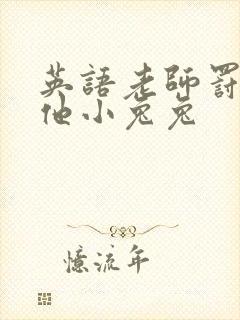 英語老師罰
他小兔兔
憶流年